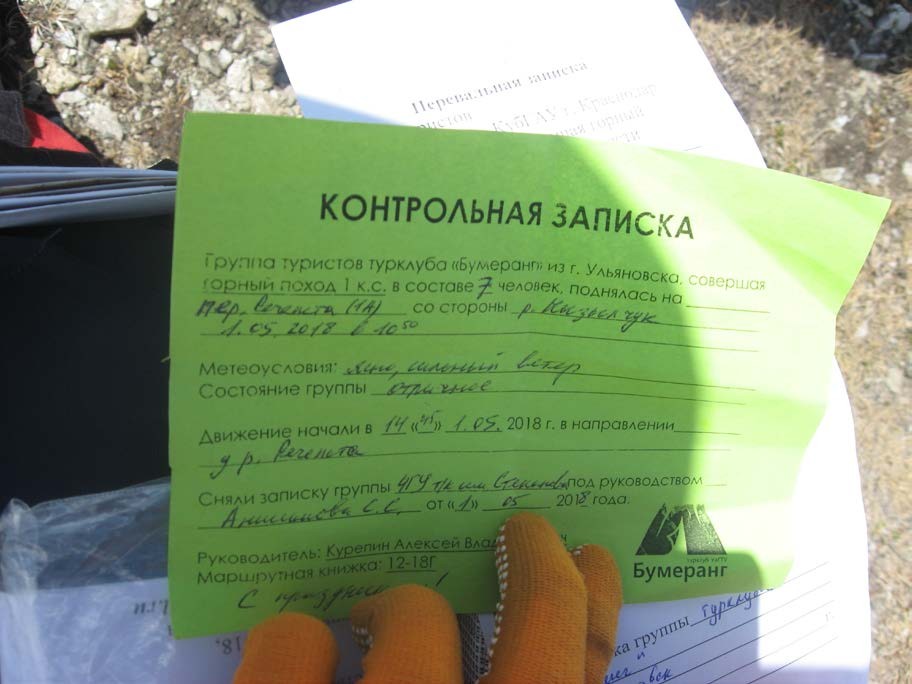 Перевальная записка
КубГАУ г. Краснодар
горный
КОНТРОЛЬНАЯ ЗАПИСКА
Группа туристов турклуба «Бумеранг» из г. Ульяновска, совершая
горный поход 1 к.с. в составе 7 человек, поднялась на
пер. Речепста (1А) со стороны р. Кызылчук
1.05.2018 в 10⁵⁰
Метеоусловия: ясно, сильный ветер
Состояние группы отличное
Движение начали в 14 «45» 1.05. 2018 г. в направлении
д р. Речепста
Сняли записку группы ЧГУ т/к им. под руководством
С.С. от «1» 05 2018 года.
Руководитель: Курепин Алексей
Маршрутная книжка: 12-18Г
С !
турклуб УлГТУ
Бумеранг
группы